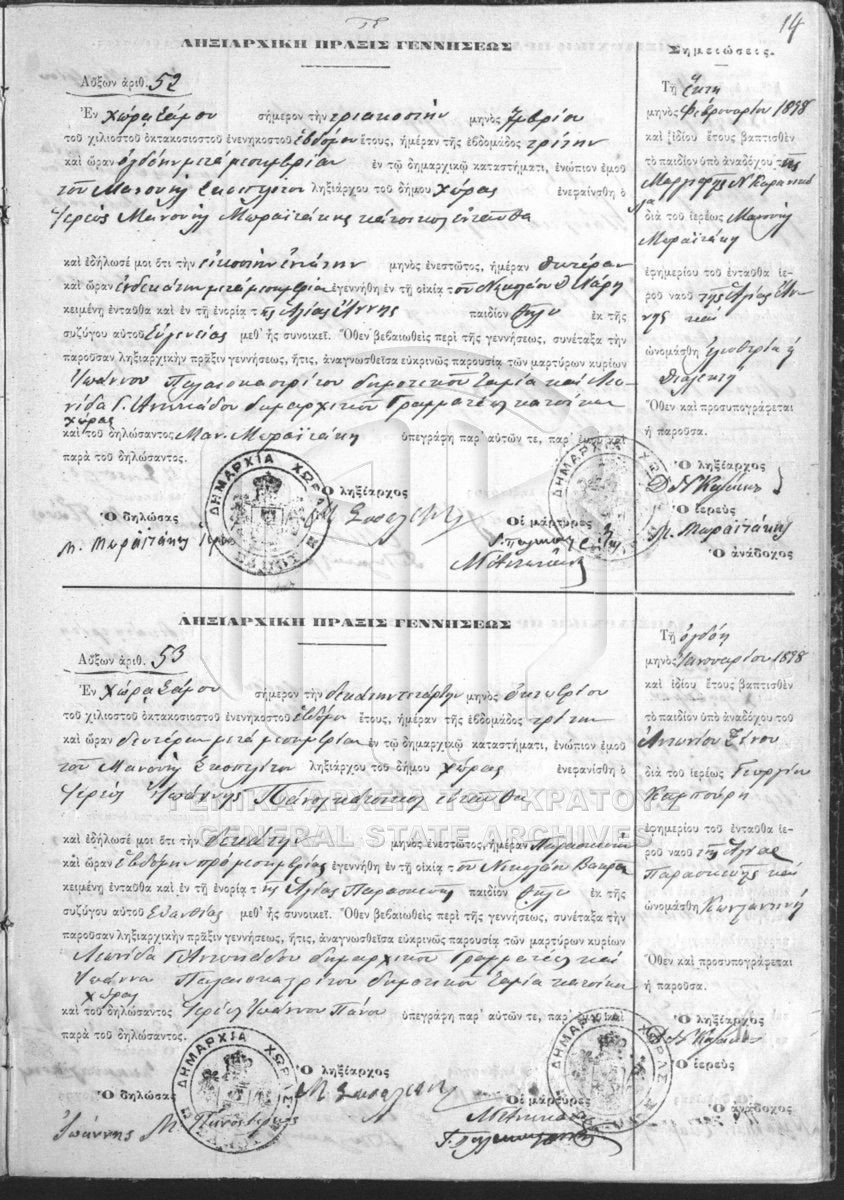 14
ΛΗΞΙΑΡΧΙΚΗ ΠΡΑΞΙΣ ΓΕΝΝΗΣΕΩΣ
Αὔξων ἀριθ. 52
Ἐν Χώρᾳ Σάμου σήμερον τὴν τριακοστὴν μηνὸς
τοῦ χιλιοστοῦ ὀκτακοσιοστοῦ ἐνενηκοστοῦ ἑβδόμου ἔτους, ἡμέραν τῆς ἑβδομάδος τρίτην
καὶ ὥραν ὀγδόην μετὰ μεσημβρίαν ἐν τῷ δημαρχικῷ καταστήματι, ἐνώπιον ἐμοῦ
τοῦ Μανουὴλ ληξιάρχου τοῦ δήμου Χώρας ἐνεφανίσθη ὁ
Ἱερεὺς Μανουὴλ Μωραϊτάκης κάτοικος ἐνταῦθα
καὶ ἐδήλωσέ μοι ὅτι τὴν εἰκοστὴν ἐνάτην μηνὸς ἐνεστῶτος, ἡμέραν δευτέραν
καὶ ὥραν ἑνδεκάτην μετὰ μεσημβρίαν ἐγεννήθη ἐν τῇ οἰκίᾳ τοῦ Νικολάου
κειμένῃ ἐνταῦθα καὶ ἐν τῇ ἐνορίᾳ τῆς Ἁγίας Ἄννης παιδίον θῆλυ ἐκ τῆς
συζύγου αὐτοῦ Εὐγενείας μεθ' ἧς συνοικεῖ. Ὅθεν βεβαιωθεὶς περὶ τῆς γεννήσεως, συνέταξα τὴν
παροῦσαν ληξιαρχικὴν πρᾶξιν γεννήσεως, ἥτις, ἀναγνωσθεῖσα εὐκρινῶς παρουσίᾳ τῶν μαρτύρων κυρίων
Ἰωάννου Παλαιοκαστρίτου δημοτικοῦ Ταμία καὶ Λεω-
νίδα Γ. δημαρχικοῦ Γραμματέως κατοίκων
Χώρας
καὶ τοῦ δηλώσαντος Μαν. Μωραϊτάκη ὑπεγράφη παρ' αὐτῶν τε, παρ' ἐμοῦ καὶ
παρὰ τοῦ δηλώσαντος.
Ὁ ληξίαρχος
Ὁ δηλώσας
Οἱ μάρτυρες
Μ. Μωραϊτάκης ἱερεὺς
ΔΗΜΑΡΧΙΑ ΧΩΡΑΣ
Σημειώσεις.
Τῇ ἕκτῃ
μηνὸς Φεβρουαρίου 1898
καὶ ἰδίου ἔτους βαπτισθὲν
τὸ παιδίον ὑπὸ ἀναδόχου τῆς
διὰ τοῦ ἱερέως Μανουὴλ
Μωραϊτάκη
ἐφημερίου τοῦ ἐνταῦθα ἱε-
ροῦ ναοῦ τῆς Ἁγίας Ἄν-
νης καὶ
ὠνομάσθη
Ὅθεν καὶ προσυπογράφεται
ἡ παροῦσα.
Ὁ ληξίαρχος
Ὁ ἱερεὺς
Μ. Μωραϊτάκης
Ὁ ἀνάδοχος
ΛΗΞΙΑΡΧΙΚΗ ΠΡΑΞΙΣ ΓΕΝΝΗΣΕΩΣ
Αὔξων ἀριθ. 53
Ἐν Χώρᾳ Σάμου σήμερον τὴν δεκάτην τετάρτην μηνὸς Ὀκτωβρίου
τοῦ χιλιοστοῦ ὀκτακοσιοστοῦ ἐνενηκοστοῦ ἑβδόμου ἔτους, ἡμέραν τῆς ἑβδομάδος τρίτην
καὶ ὥραν δευτέραν μετὰ μεσημβρίαν ἐν τῷ δημαρχικῷ καταστήματι, ἐνώπιον ἐμοῦ
τοῦ Μανουὴλ ληξιάρχου τοῦ δήμου Χώρας ἐνεφανίσθη ὁ
Ἱερεὺς Ἰωάννης Πάνου κάτοικος ἐνταῦθα
ΓΕΝΙΚΑ ΑΡΧΕΙΑ ΤΟΥ ΚΡΑΤΟΥΣ
GENERAL STATE ARCHIVES
καὶ ἐδήλωσέ μοι ὅτι τὴν δεκάτην μηνὸς ἐνεστῶτος, ἡμέραν Παρασκευὴν
καὶ ὥραν ἑβδόμην πρὸ μεσημβρίας ἐγεννήθη ἐν τῇ οἰκίᾳ τοῦ Νικολάου
κειμένῃ ἐνταῦθα καὶ ἐν τῇ ἐνορίᾳ τῆς Ἁγίας Παρασκευῆς παιδίον θῆλυ ἐκ τῆς
συζύγου αὐτοῦ Εὐανθίας μεθ' ἧς συνοικεῖ. Ὅθεν βεβαιωθεὶς περὶ τῆς γεννήσεως, συνέταξα τὴν
παροῦσαν ληξιαρχικὴν πρᾶξιν γεννήσεως, ἥτις, ἀναγνωσθεῖσα εὐκρινῶς παρουσίᾳ τῶν μαρτύρων κυρίων
Λεωνίδα Γ. δημαρχικοῦ Γραμματέως καὶ
Ἰωάννου Παλαιοκαστρίτου δημοτικοῦ Ταμία κατοίκων
Χώρας
καὶ τοῦ δηλώσαντος Ἱερέως Ἰωάννου Πάνου ὑπεγράφη παρ' αὐτῶν τε, παρ' ἐμοῦ καὶ
παρὰ τοῦ δηλώσαντος.
Ὁ ληξίαρχος
Ὁ δηλώσας
Οἱ μάρτυρες
Ἰωάννης Μ. Πάνου ἱερεὺς
ΔΗΜΑΡΧΙΑ ΧΩΡΑΣ
Τῇ ὀγδόῃ
μηνὸς Ἰανουαρίου 1898
καὶ ἰδίου ἔτους βαπτισθὲν
τὸ παιδίον ὑπὸ ἀναδόχου τοῦ
Ἀντωνίου Ξένου
διὰ τοῦ ἱερέως Γεωργίου
ἐφημερίου τοῦ ἐνταῦθα ἱε-
ροῦ ναοῦ τῆς Ἁγίας
Παρασκευῆς καὶ
ὠνομάσθη
Ὅθεν καὶ προσυπογράφεται
ἡ παροῦσα.
Ὁ ληξίαρχος
Ὁ ἱερεὺς
Ὁ ἀνάδοχος